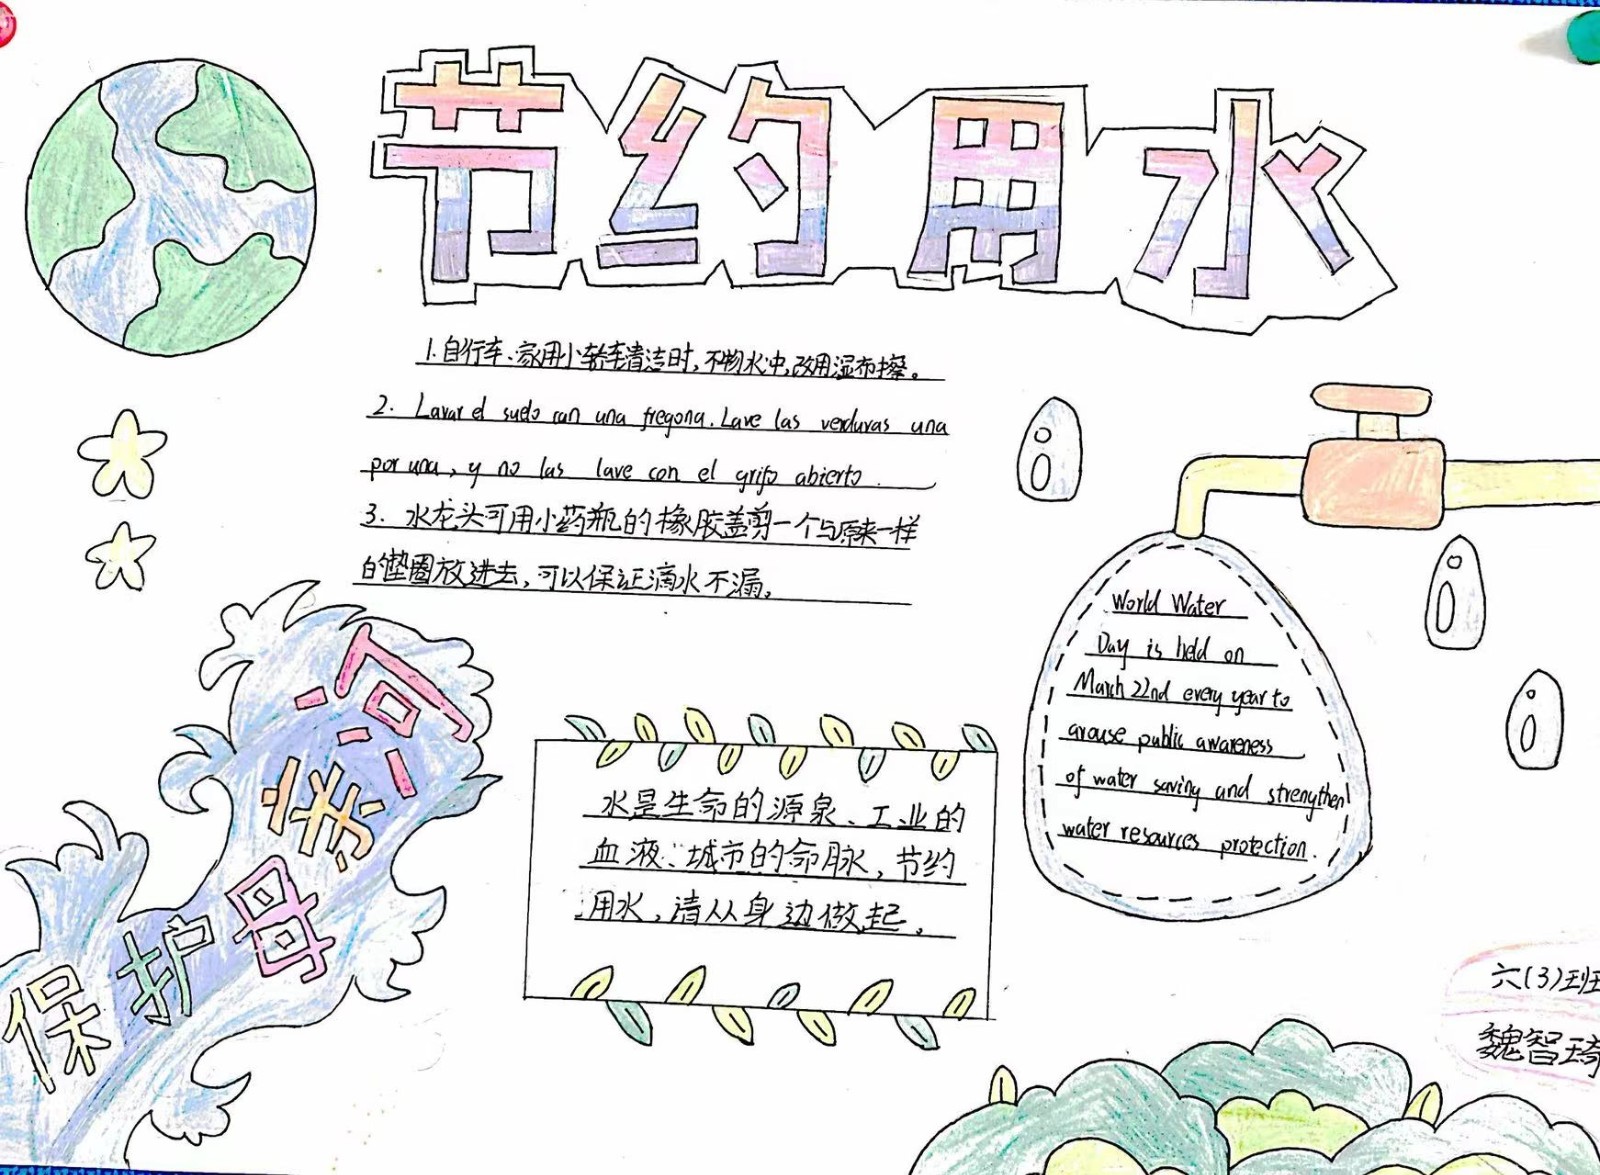 节约用水
1.自行车、家用小轿车清洁时,不物水冲,改用湿布擦。
2. Lavar el suelo con una fregona. Lave las verduras una
por una, y no las lave con el grifo abierto.
3. 水龙头可用小药瓶的橡胶盖剪一个与原来一样
的垫圈放进去,可以保证滴水不漏。
World Water
Day is held on
March 22nd every year to
arouse public awareness
of water saving and strengthen
water resources protection.
保护母亲河
水是生命的源泉、工业的
血液、城市的命脉,节约
用水,请从身边做起。
六(3)班
魏智琦